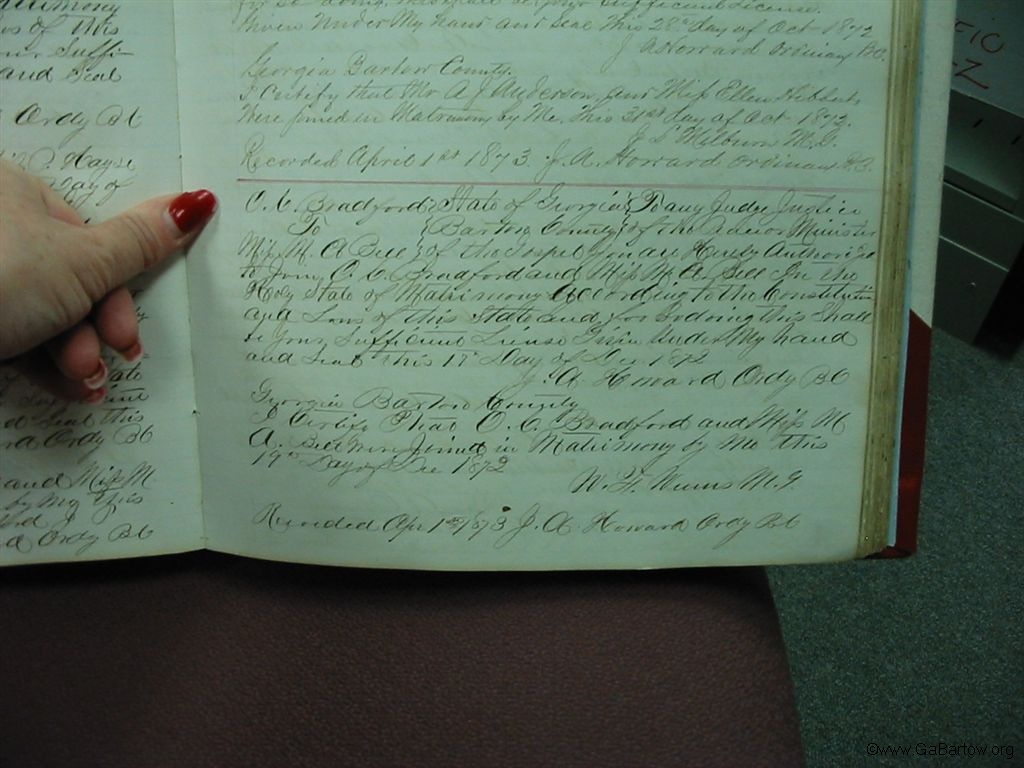 atrimony
of this
Suffi
and Seal
Ordy BC
Hayse
Day of
State
d Seal this
rd Ordy BC
and Miss M.
by Me this
d Ordy BC
for so doing, this shall be your Sufficient License.
Given Under My hand and Seal This 28th day of Oct 1872
J A Howard Ordinary B.C.
Georgia Bartow County.
I Certify that Mr A. J. Anderson, and Miss Ellen Hibberts
Were joined in Matrimony by Me, This 31st day of Oct 1872.
J. S. Milburn M.G.
Recorded April 1st 1873. J. A. Howard Ordinary B.C.
O. C. Bradford } State of Georgia } To any Judge Justice
To } Bartow County } of the Inferior Minister
Miss M. A Bell } of the Gospel you are Hereby Authorized
to Join O. C. Bradford and Miss M. A. Bell In the
Holy State of Matrimony According to the Constitution
and Laws of this State and for so doing this Shall
be your Sufficient License Given Under My hand
and Seal this 18 Day of Dec 1872
J. A Howard Ordy BC
Georgia Bartow County
I Certify That O. C. Bradford and Miss M
A. Bell Were Joined in Matrimony by Me this
19th Day of Dec 1872
W. H. M.G.
Recorded Apr 1st 1873 J. A Howard Ordy BC
FIC
-Z
©www.GaBartow.org